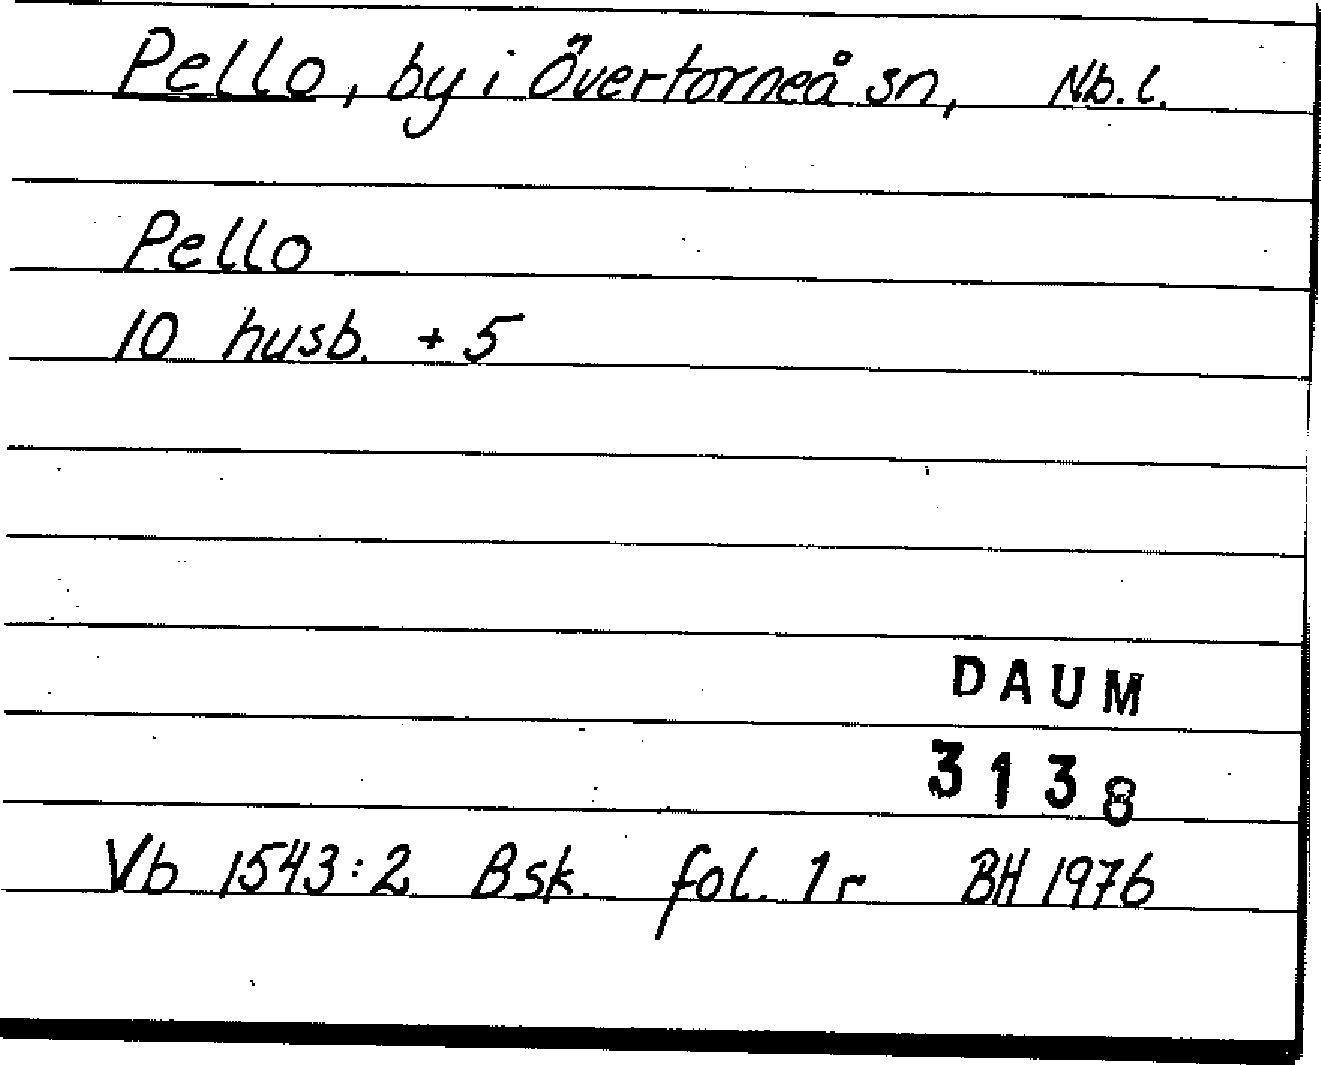 Pello, by i Övertorneå sn, Nb. l.
Pello
10 husb. + 5
DAUM
3138
Vb 1543:2 Bsk. fol. 1r BH 1976